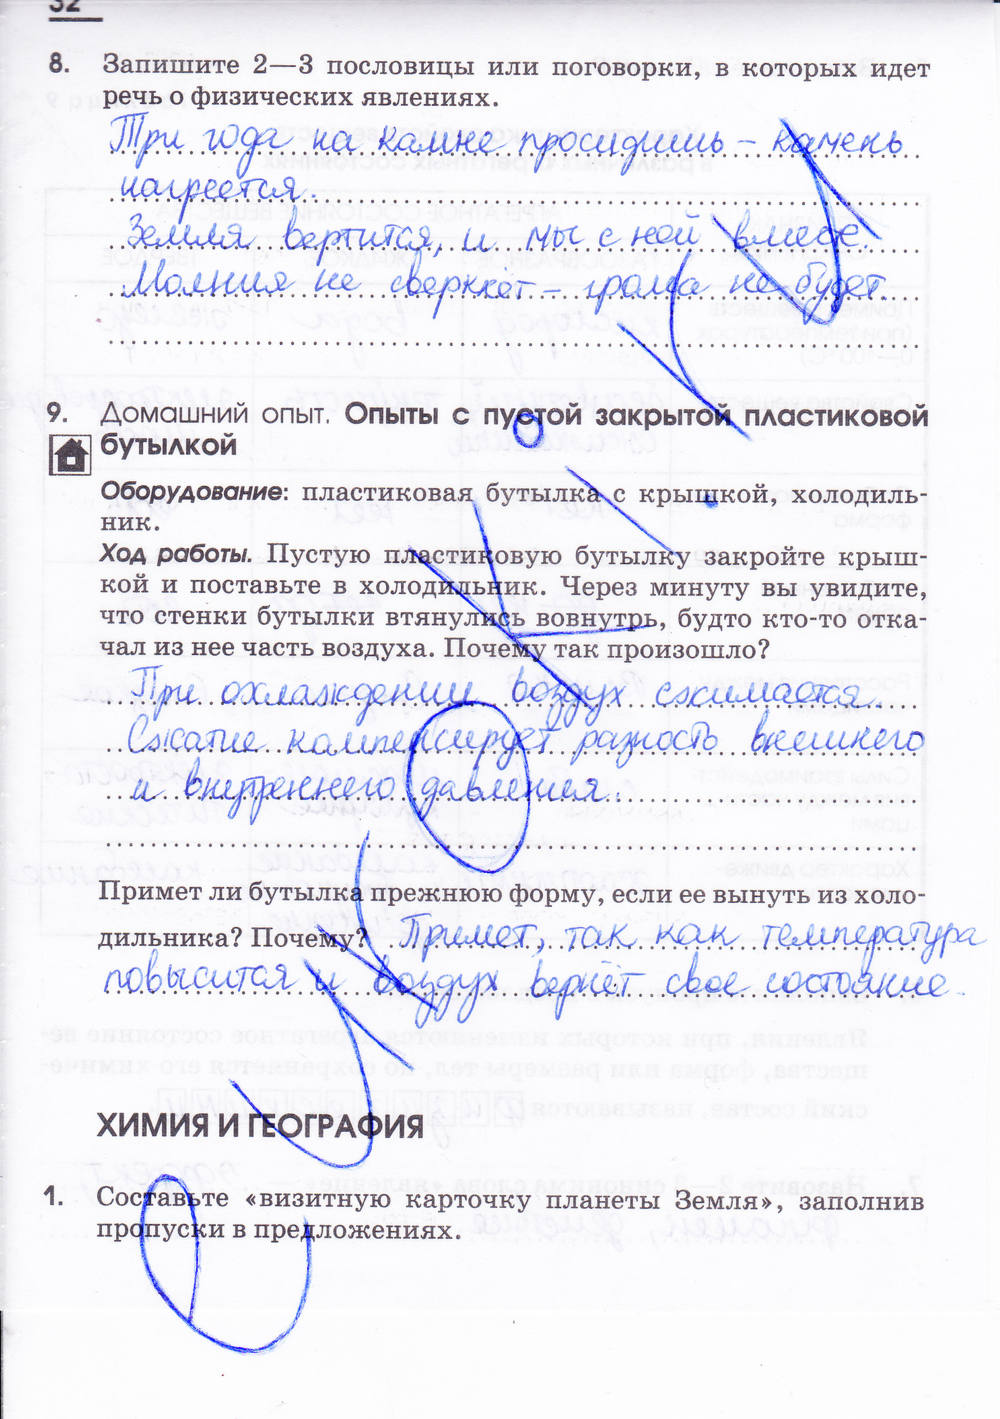 32
8. Запишите 2—3 пословицы или поговорки, в которых идет
речь о физических явлениях.
Три года на камне просидишь – камень
нагреется.
Земля вертится, и мы с ней вместе.
Молния не сверкнёт – грома не будет.
9. Домашний опыт. Опыты с пустой закрытой пластиковой
бутылкой
Оборудование: пластиковая бутылка с крышкой, холодиль-
ник.
Ход работы. Пустую пластиковую бутылку закройте крыш-
кой и поставьте в холодильник. Через минуту вы увидите,
что стенки бутылки втянулись вовнутрь, будто кто-то отка-
чал из нее часть воздуха. Почему так произошло?
При охлаждении воздух сжимается.
Сжатие компенсирует разность внешнего
и внутреннего давления.
Примет ли бутылка прежнюю форму, если ее вынуть из холо-
дильника? Почему? Примет, так как температура
повысится и воздух вернёт свое состояние.
ХИМИЯ И ГЕОГРАФИЯ
1. Составьте «визитную карточку планеты Земля», заполнив
пропуски в предложениях.